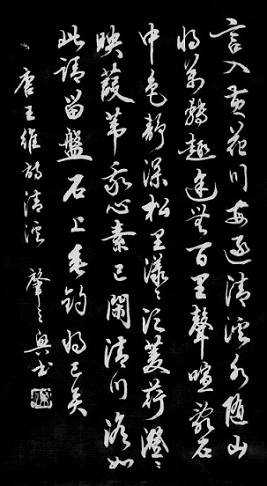 言入黄花川每逐清溪水随山
将萬轉趣途無百里聲喧亂石
中色静深松里漾々泛菱荇澄々
映葭苇我心素已閑清川澹如
此請留盤石上垂钓将已矣
唐王維詩清溪